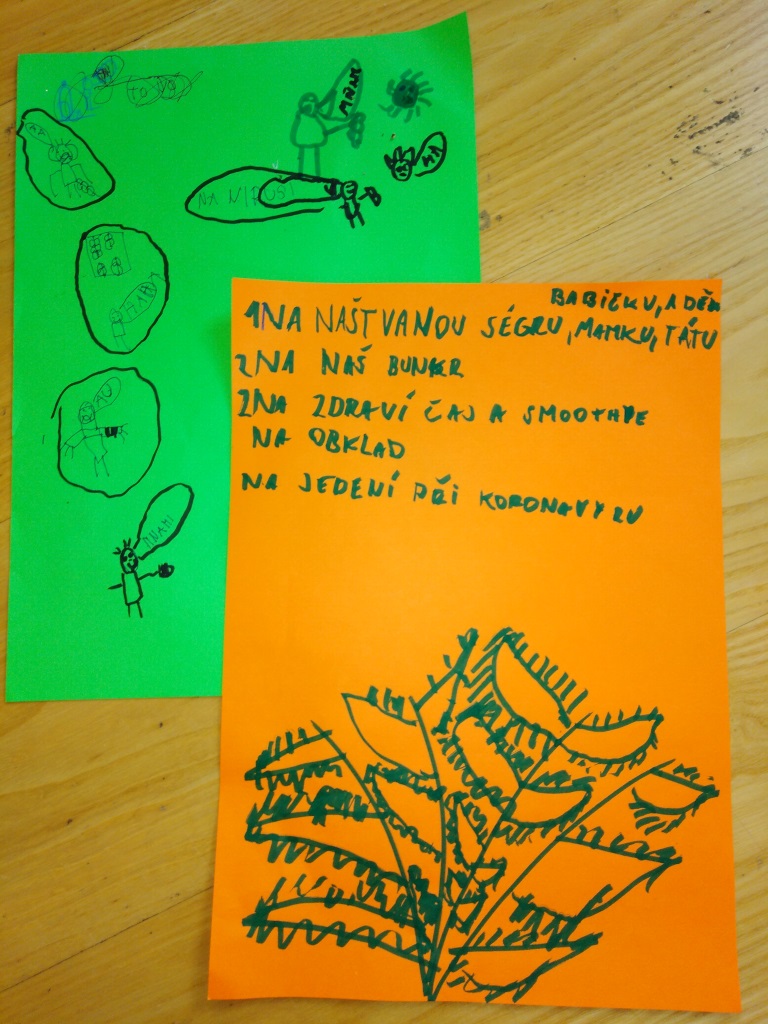 MŇAM
AA
HA
NA NIKOHO
HAD
AU
MŇAM!
BABIČKU, A DĚDU
1NA NAŠTVANOU SÉGRU, MAMKU, TÁTU
2NA NAŠ BUNKR
2NA ZDRAVÍ ČAJ A SMOOTHPE
NA OBKLAD
NA JEDENÍ PŘI KORONAVYRU